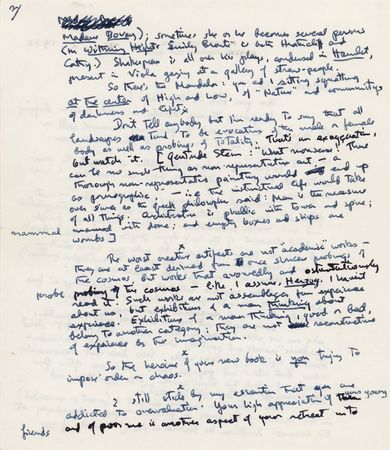 7/
Madame Bovary); sometimes she or he becomes several persons
(in Wuthering Heights Emily Brontë is both Heathcliff and
Cathy.) Shakespeare is all over his plays, condensed in Hamlet,
present in Viola gazing at a gallery of straw-people.
So there's the Mandala: you and I sitting squatting
at the center of High and Low, of "Nature" and community,
of darkness and light.
Don't tell anybody but I'm ready to say that all
landscapes tend to be evocations of the male or female
body as well as probings of Totality. That's an exaggeration,
but watch it. [Gertrude Stein: "What nonsense! There
can be no such thing as non-representative art — a
thorough non-representative painting would end up
as pornographic." — i.e. the instinctual life would take
over since as the Greek philosopher said: Man is the measure
of all things. Architecture is phallic with tower and spire;
mammal with dome; and empty boxes and skips are
mammal
wombs]
x
The worst creative artifacts are not "academic" works —
they are at least derived from once sincere probings of
the cosmos, but those that avowedly and ostentatiously
probe
the cosmos — like, I assume, Herzog. I haven't
read it. Such works are not assemblages from experience
about us; but exhibitions of a man thinking about
experience. Exhibitions of a man thinking, good or bad,
belong to another category; they are not reconstructions
of experience by the imagination.
x
So the heroine of your new book is you trying to
impose order on chaos.
x
I still stick by my assertion that you are
addicted to overvaluation. Your high appreciation of these your young
friends
and of poor me is another aspect of your retreat into